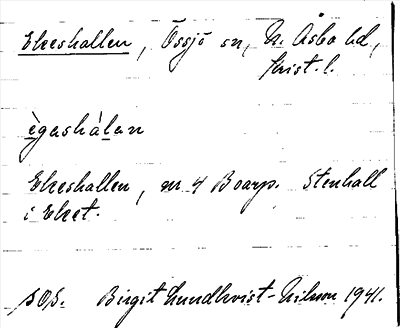 Ekeshallen, Össjö sn, N. Åsbo hd,
Krist. l.
ègashálan
Ekeshallen, nr 4 Boarp. Stenhall
i Eket.
Birgit Lundkvist-Nilsson 1941.